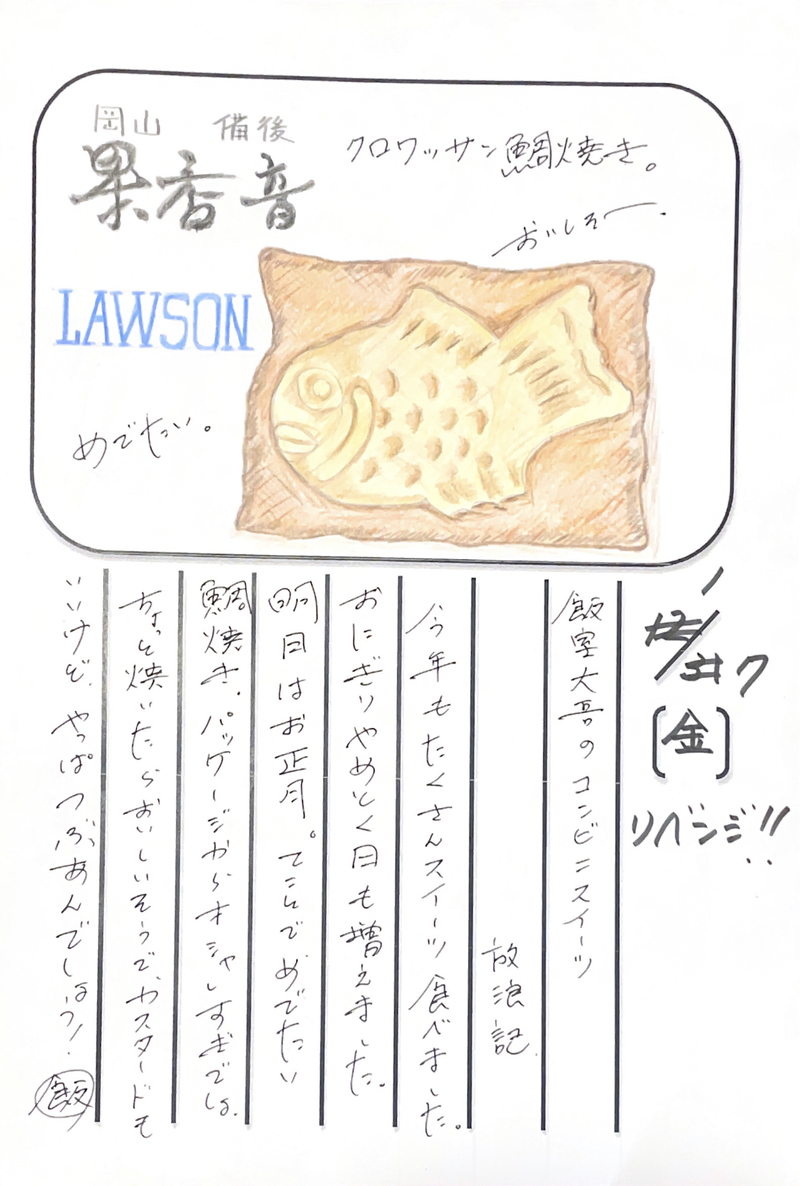 岡山 備後
果香音
クロワッサン鯛焼き。
おいしそー。
LAWSON
めでたい。
(金)
リベンジ!!
飯室大吾のコンビニスイーツ
放浪記
今年もたくさんスイーツ食べました。
おにぎりやめとく日も増えました。
明日はお正月。てことでめでたい
鯛焼き。パッケージからオシャレすぎでしょ。
ちょっと焼いたらおいしいそうで、カスタードも
いいけど、やっぱつぶあんでしょう!
飯